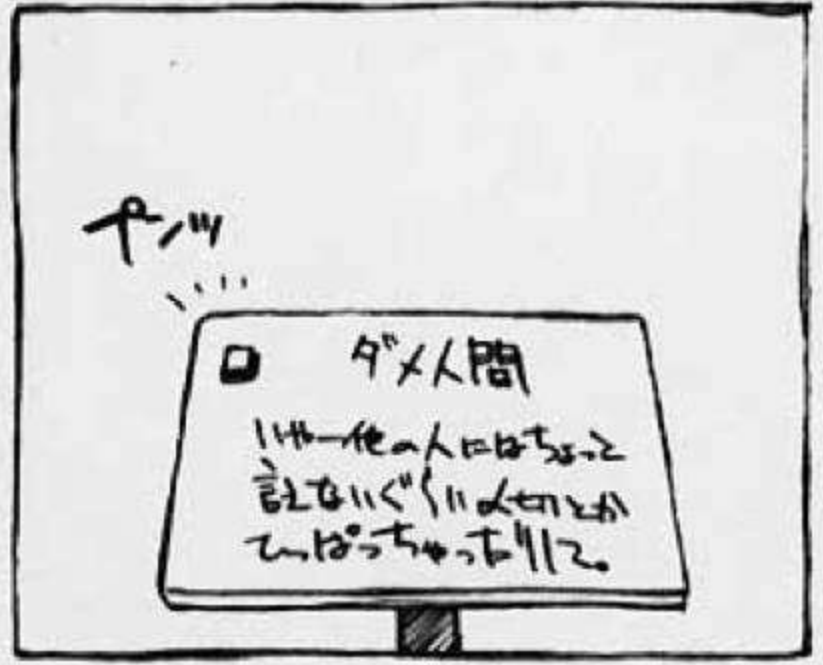 ダメ人間
いやー他の人にはちょっと
言えないぐらい〆切とか
ひっぱっちゃったりして。